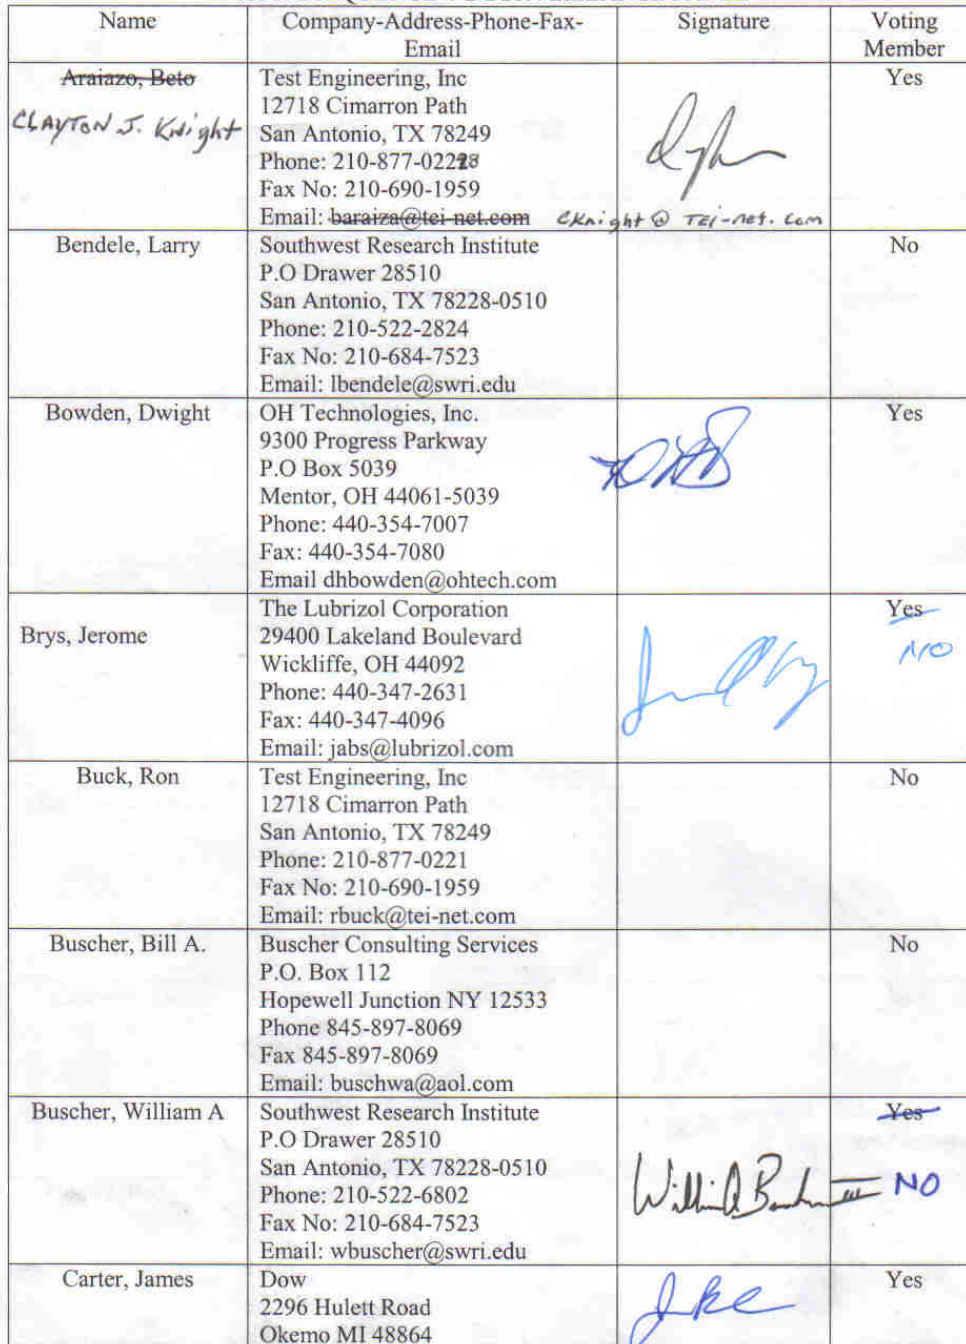 Name Company-Address-Phone-Fax- Signature Voting
Email Member
Araiazo, Beto Test Engineering, Inc Yes
12718 Cimarron Path
CLAYTON J. Knight San Antonio, TX 78249
Phone: 210-877-0228
Fax No: 210-690-1959
Email: baraiza@tei-net.com CKnight@TEI-net.com
Bendele, Larry Southwest Research Institute No
P.O Drawer 28510
San Antonio, TX 78228-0510
Phone: 210-522-2824
Fax No: 210-684-7523
Email: lbendele@swri.edu
Bowden, Dwight OH Technologies, Inc. Yes
9300 Progress Parkway
P.O Box 5039
Mentor, OH 44061-5039
Phone: 440-354-7007
Fax: 440-354-7080
Email dhbowden@ohtech.com
The Lubrizol Corporation Yes
Brys, Jerome 29400 Lakeland Boulevard NO
Wickliffe, OH 44092
Phone: 440-347-2631
Fax: 440-347-4096
Email: jabs@lubrizol.com
Buck, Ron Test Engineering, Inc No
12718 Cimarron Path
San Antonio, TX 78249
Phone: 210-877-0221
Fax No: 210-690-1959
Email: rbuck@tei-net.com
Buscher, Bill A. Buscher Consulting Services No
P.O. Box 112
Hopewell Junction NY 12533
Phone 845-897-8069
Fax 845-897-8069
Email: buschwa@aol.com
Buscher, William A Southwest Research Institute Yes
P.O Drawer 28510
San Antonio, TX 78228-0510 NO
Phone: 210-522-6802
Fax No: 210-684-7523
Email: wbuscher@swri.edu
Carter, James Dow Yes
2296 Hulett Road
Okemo MI 48864